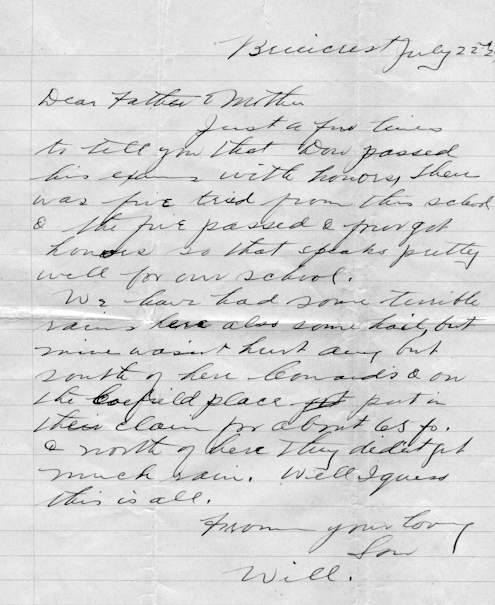 Briercrest July 22nd
Dear Father & Mother
Just a few lines
to tell you that Don passed
his exams with honors, there
was five tried from this school
& the five passed & four got
honors so that speaks pretty
well for our school.
We have had some terrible
rains here also some hail, but
mine wasn't hurt any but
south of here & on
the place put in
their claim for about 65 %.
& north of here they didn't get
much rain. Well I guess
this is all.
From your loving
Son
Will.